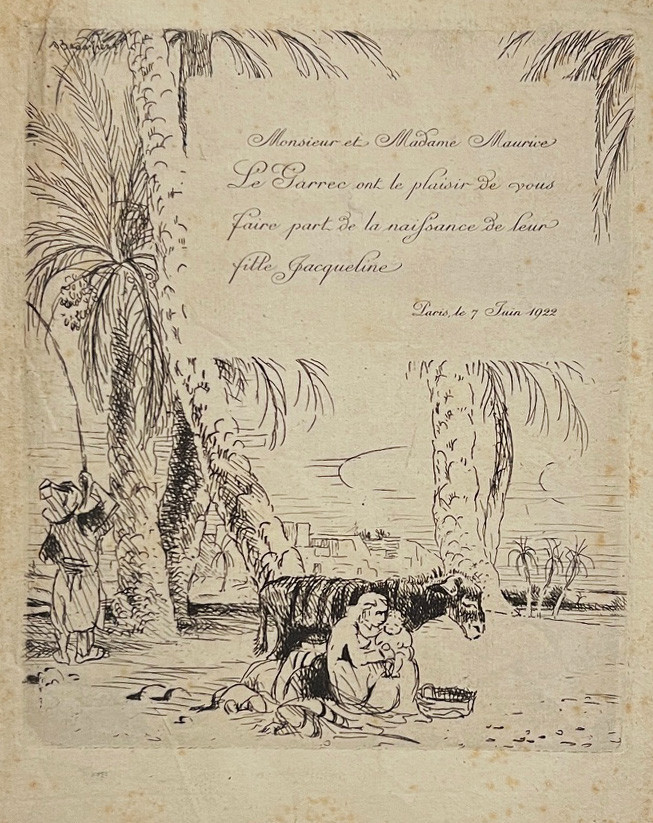 Monsieur et Madame Maurice
Le Garrec ont le plaisir de vous
faire part de la naissance de leur
fille Jacqueline
Paris, le 7 Juin 1922